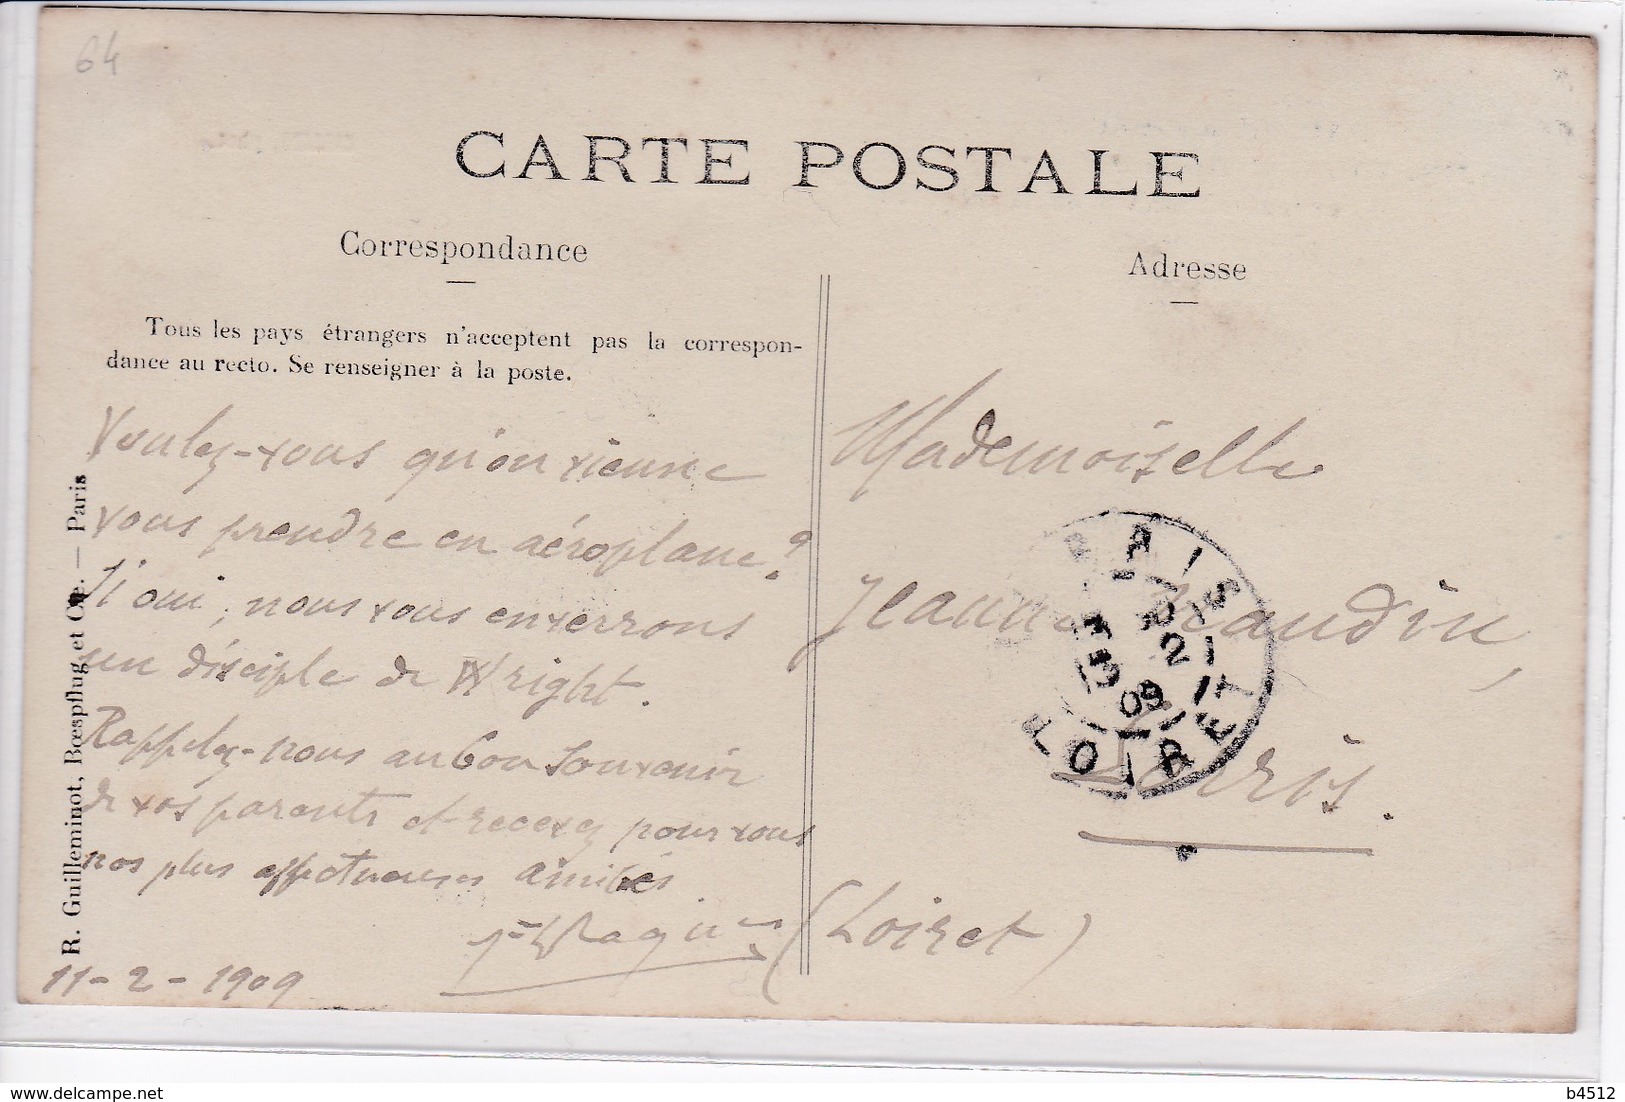 64
CARTE POSTALE
Correspondance
Adresse
Tous les pays étrangers n'acceptent pas la correspon-
dance au recto. Se renseigner à la poste.
Voulez-vous qu'on vienne
vous prendre en aéroplane ?
Si oui, nous vous enverrons
un disciple de Wright.
Rappelez-nous au bon souvenir
de vos parents et recevez pour vous
nos plus affectueuses amitiés
11-2-1909
R. Guilleminot, Bœspflug et Cie. — Paris
Mademoiselle
Jeanne
Lorris.
(Loiret)
LORRIS
12
2
09
LOIRET
delcampe.net
b4512